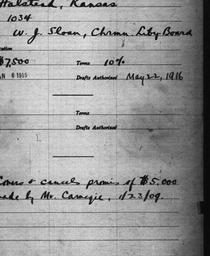 Halstead, Kansas
1034
W. J. Sloan, Chrmn Liby Board
$7,500 Terms 10%
6 1915 Drafts Authorized May 22, 1916
Terms
Drafts Authorized
Covers & cancels promis of $5,000
made by Mr. Carnegie, 1/23/09.